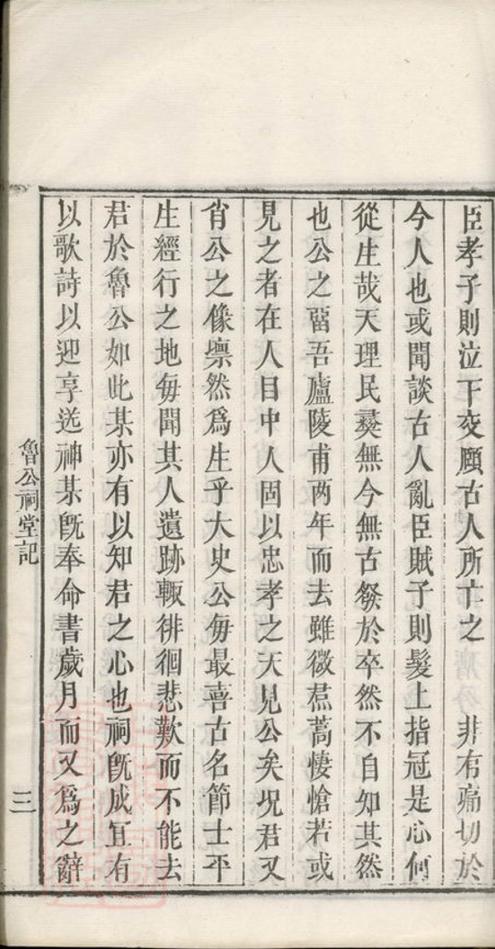 臣孝子則泣下交頤古人所亡之 非有痛切於
今人也或聞談古人亂臣賊子則髮上指冠是心何
從生哉天理民彝無今無古發於卒然不自知其然
也公之留吾廬陵甫两年而去雖微焄蒿悽愴若或
見之者在人目中人固以忠孝之天見公矣況君又
肖公之像凛然爲生乎大史公每最喜古名節士平
生經行之地每聞其人遺跡輙徘徊悲歎而不能去
君於魯公如此某亦有以知君之心也祠旣成宜有
以歌詩以迎享送神某旣奉命書歲月而又爲之辭
魯公祠堂記
三